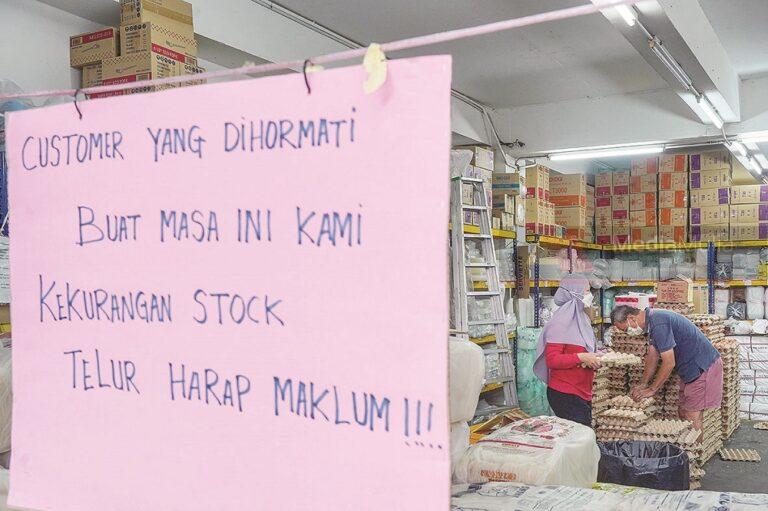 CUSTOMER YANG DIHORMATI
BUAT MASA INI KAMI
KEKURANGAN STOCK
TELUR HARAP MAKLUM !!!